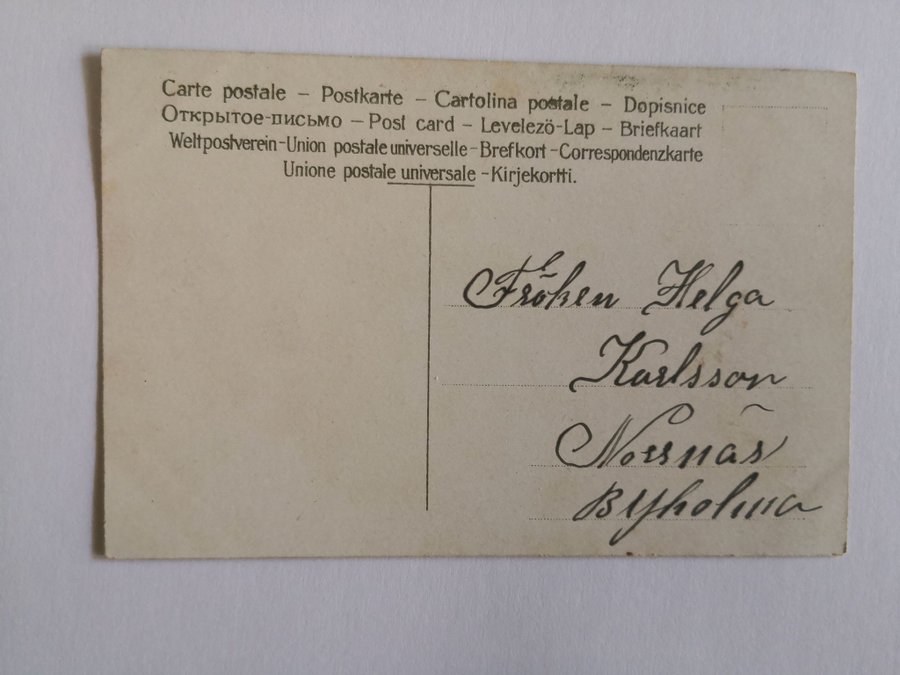 Carte postale – Postkarte – Cartolina postale – Dopisnice
Открытое-письмо – Post card – Levelezö-Lap – Briefkaart
Weltpostverein-Union postale universelle-Brefkort-Correspondenzkarte
Unione postale universale-Kirjekortti.
Fröken Helga
Karlsson
Norrnäs
Byholma